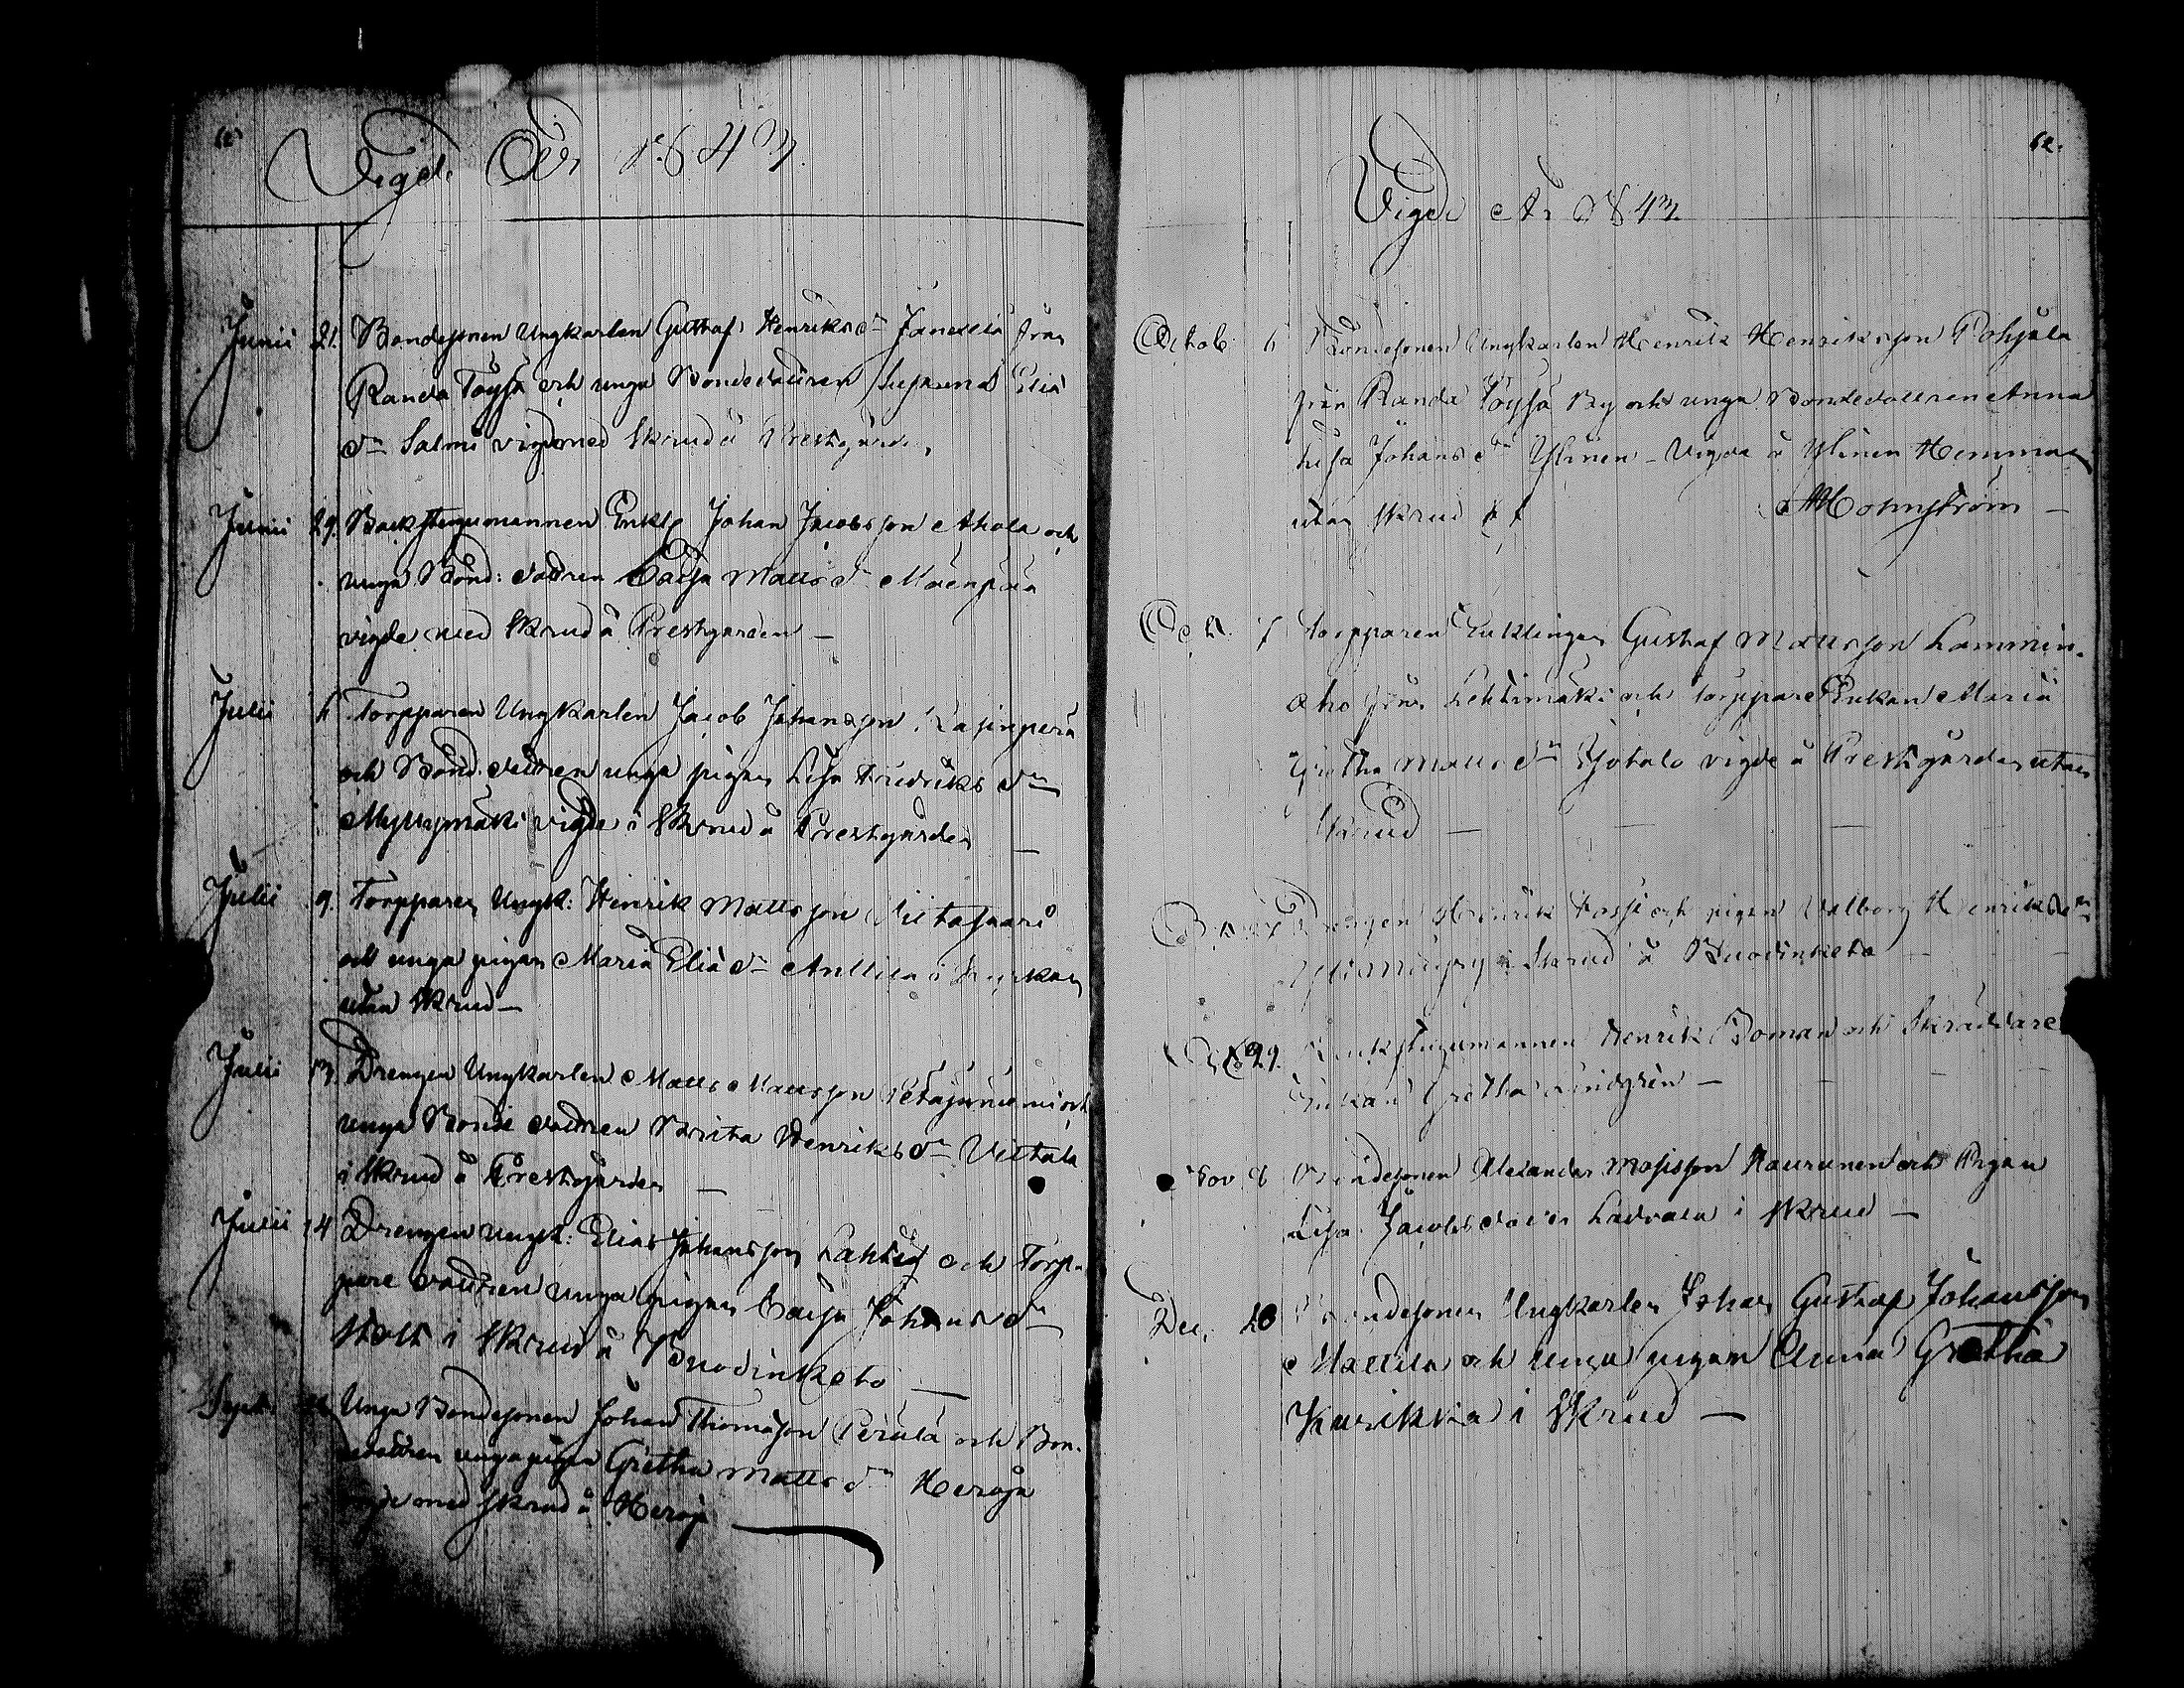 Vigde År 1843.
Junii 21. Bondesonen Ungkarlen Gustaf Henriks Sn Janeslä från
Randa Töysä och unga Bondedottren Susanna Eliä
dr Salmi vigd med skrud å Prestgården,
Junii 29. Backstugumannen Enkl. Johan Jacobsson Ahola och
unga Bond: dottren Caisa Matts dr Mäenpää
vigde med skrud å Prestgården –
Julii 6 Torpparen Ungkarlen Jacob Johansson
och Bond. dottren unga pigan Lisa Fredriks dr
Myllymäki vigde i skrud å Prestgården –
Julii 9. Torpparen Ungk: Henrik Mattsson
och unga pigan Maria Eliä dr Anttila i kyrkan
utan skrud –
Julii 13. Drengen Ungkarlen Matts Mattsson Petäjäniemi och
unga Bonde dottren Brita Henriks dr Vittala
i skrud å Prestgården –
Julii 14 Drengen ungk: Elias Johansson och Torp-
pare dottren unga pigan Caisa Johans dr
i skrud å Buodinketo –
Sept. Unga Bondesonen Johan Thomasson Perälä och Bon-
dedottren unga pigan Gretha Matts dr Heroja
vigde med skrud å Heroja
62.
Vigde År 1843
Octob. 6 Bondesonen Ungkarlen Henrik Henriksson Pohjala
från Randa Töysä By och unga Bondedottren Anna
Lisa Johans dr Ylinen – Vigde å Ylinen Hemman
utan skrud
Oct. 7 Torpparen Enklingen Gustaf Mattsson Lammin-
aho från Lehtimäki och torppare Enkan Maria
Gretha Matts dr vigde å Prestgården utan
skrud –
Drengen Henrik och pigan Valborg Henriksdr
i Skrud å Buodinketo
29. Backstugumannen Henrik Boman och Skräddare
Enkan Gretha Lindgren –
Nov 8 Bondesonen Alexander Mosisson Kaurunen och Pigan
Lisa Jacobs dotter Ladvala i skrud –
Dec. 28 Bondesonen Ungkarlen Johan Gustaf Johansson
Mattila och unga pigan Anna Gretha
Kurikka i skrud –